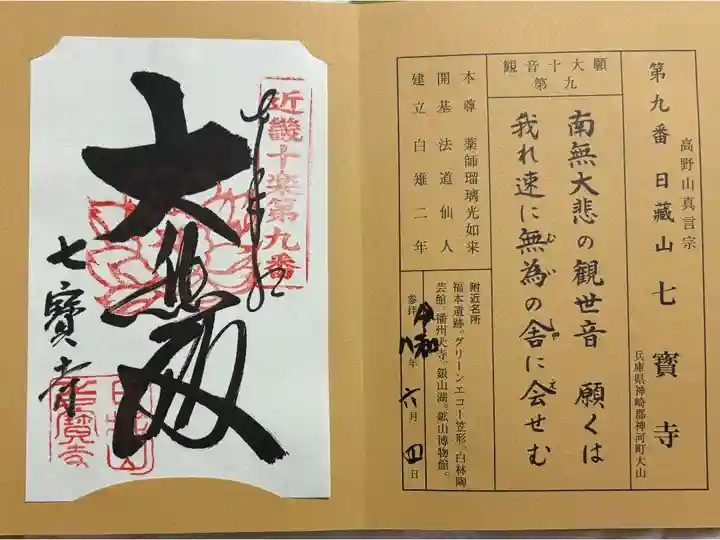 高野山真言宗
第九番 日藏山 七寳寺
兵庫県神崎郡神河町大山
観音十大願
第九
南無大悲の観世音 願くは
我れ速に無為の舎に会せむ
む ゐ
しゃ え
本尊 薬師瑠璃光如来
開基 法道仙人
建立 白雉二年
附近名所
福本遺跡。グリーンエコー笠形。白林陶
芸館。播州犬寺。銀山湖。鉱山博物館。
参拝 令和八年 六月 四日
近畿十楽第九番
大悲殿
七寳寺